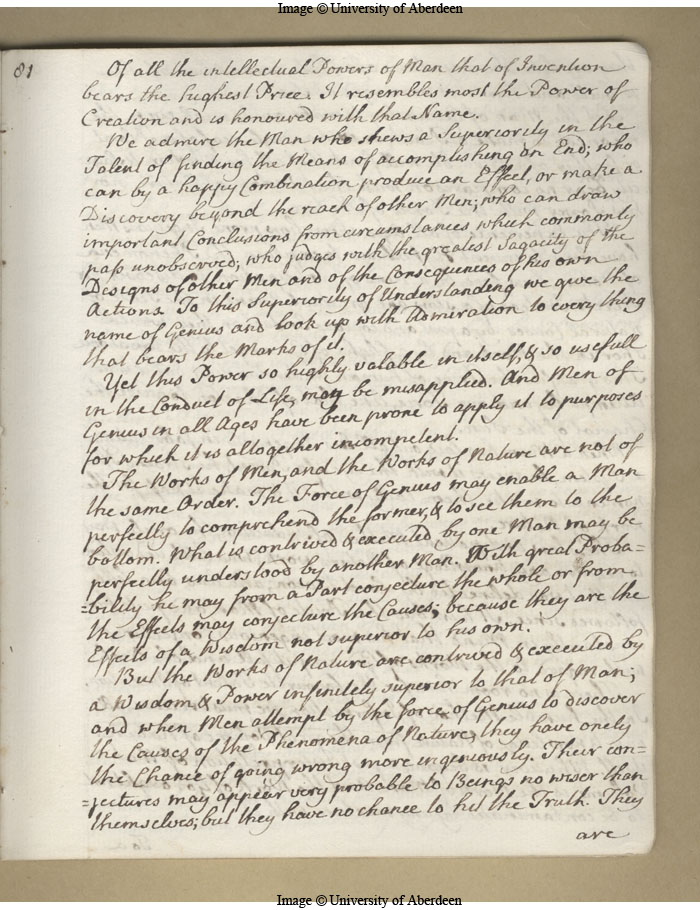 Image © University of Aberdeen
81
Of all the intellectual Powers of Man that of Invention
bears the highest Price. It resembles most the Power of
Creation and is honoured with that Name.
We admire the Man who shews a Superiority in the
Talent of finding the Means of accomplishing an End; who
can by a happy Combination produce an Effect, or make a
Discovery beyond the reach of other Men; who can draw
important Conclusions from circumstances which commonly
pass unobserved; who judges with the greatest Sagacity of the
Designs of other Men and of the Consequences of his own
Actions. To this Superiority of Understanding we give the
name of Genius and look up with Admiration to every thing
that bears the Marks of it.
Yet this Power so highly valable in itself, & so usefull
in the Conduct of Life, may be misapplied. And Men of
Genius in all Ages have been prone to apply it to purposes
for which it is altogether incompetent.
The Works of Men, and the Works of Nature are not of
the same Order. The Force of Genius may enable a Man
perfectly to comprehend the former, & to see them to the
bottom. What is contrived & executed by one Man may be
perfectly understood by another Man. With great Proba=
=bility he may from a Part conjecture the whole or from
the Effects may conjecture the Causes; because they are the
Effects of a Wisdom not superior to his own.
But the Works of Nature are contrived & executed by
a Wisdom & Power infinitely superior to that of Man;
and when Men attempt by the force of Genius to discover
the Causes of the Phenomena of Nature, they have onely
the Chance of going wrong more ingeniously. Their con=
=jectures may appear very probable to Beings no wiser than
themselves; but they have no chance to hit the Truth. They
are
Image © University of Aberdeen